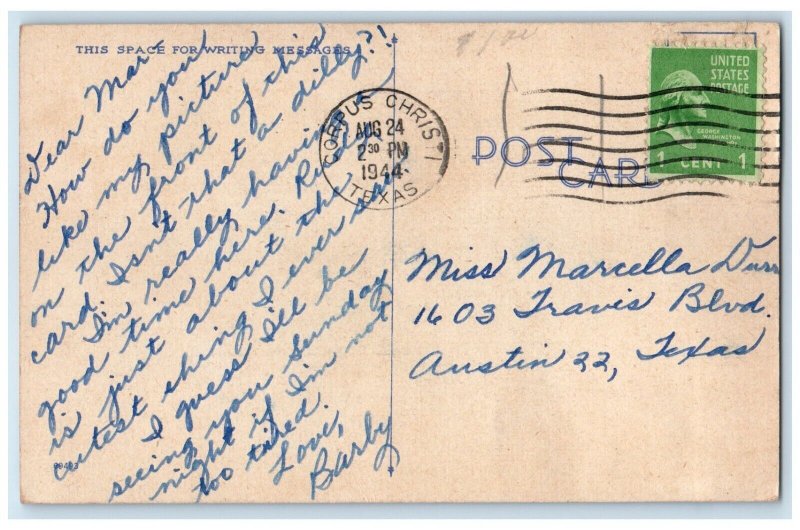 THIS SPACE FOR WRITING MESSAGES
Dear Mar-
How do you
like my picture
on the front of this
card. Isn't that a dilly?!
I'm really having a
good time here.
is just about the
cutest thing I ever saw
I guess I'll be
seeing you Sunday
night if I'm not
too tired.
Love,
Barby
CORPUS CHRISTI
AUG 24
2 30 PM
1944
TEXAS
POST
CARD
UNITED
STATES
POSTAGE
GEORGE
WASHINGTON
1 CENT 1
Miss Marcella Durr
1603 Travis Blvd.
Austin 22, Texas